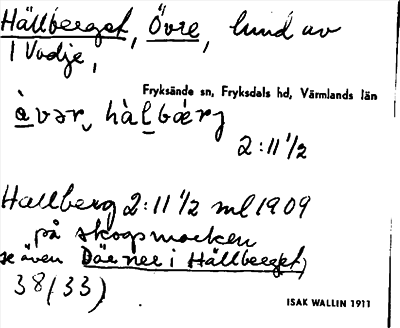 Hällberget, Övre, lund av
1 Vadje,
Fryksände sn, Fryksdals hd, Värmlands län
àvər, hàlbærj
2:11 1/2
Hallberg 2:11 1/2 ml 1909
på skogsmarken
se även Där ner i Hällberget,
38(33)
ISAK WALLIN 1911